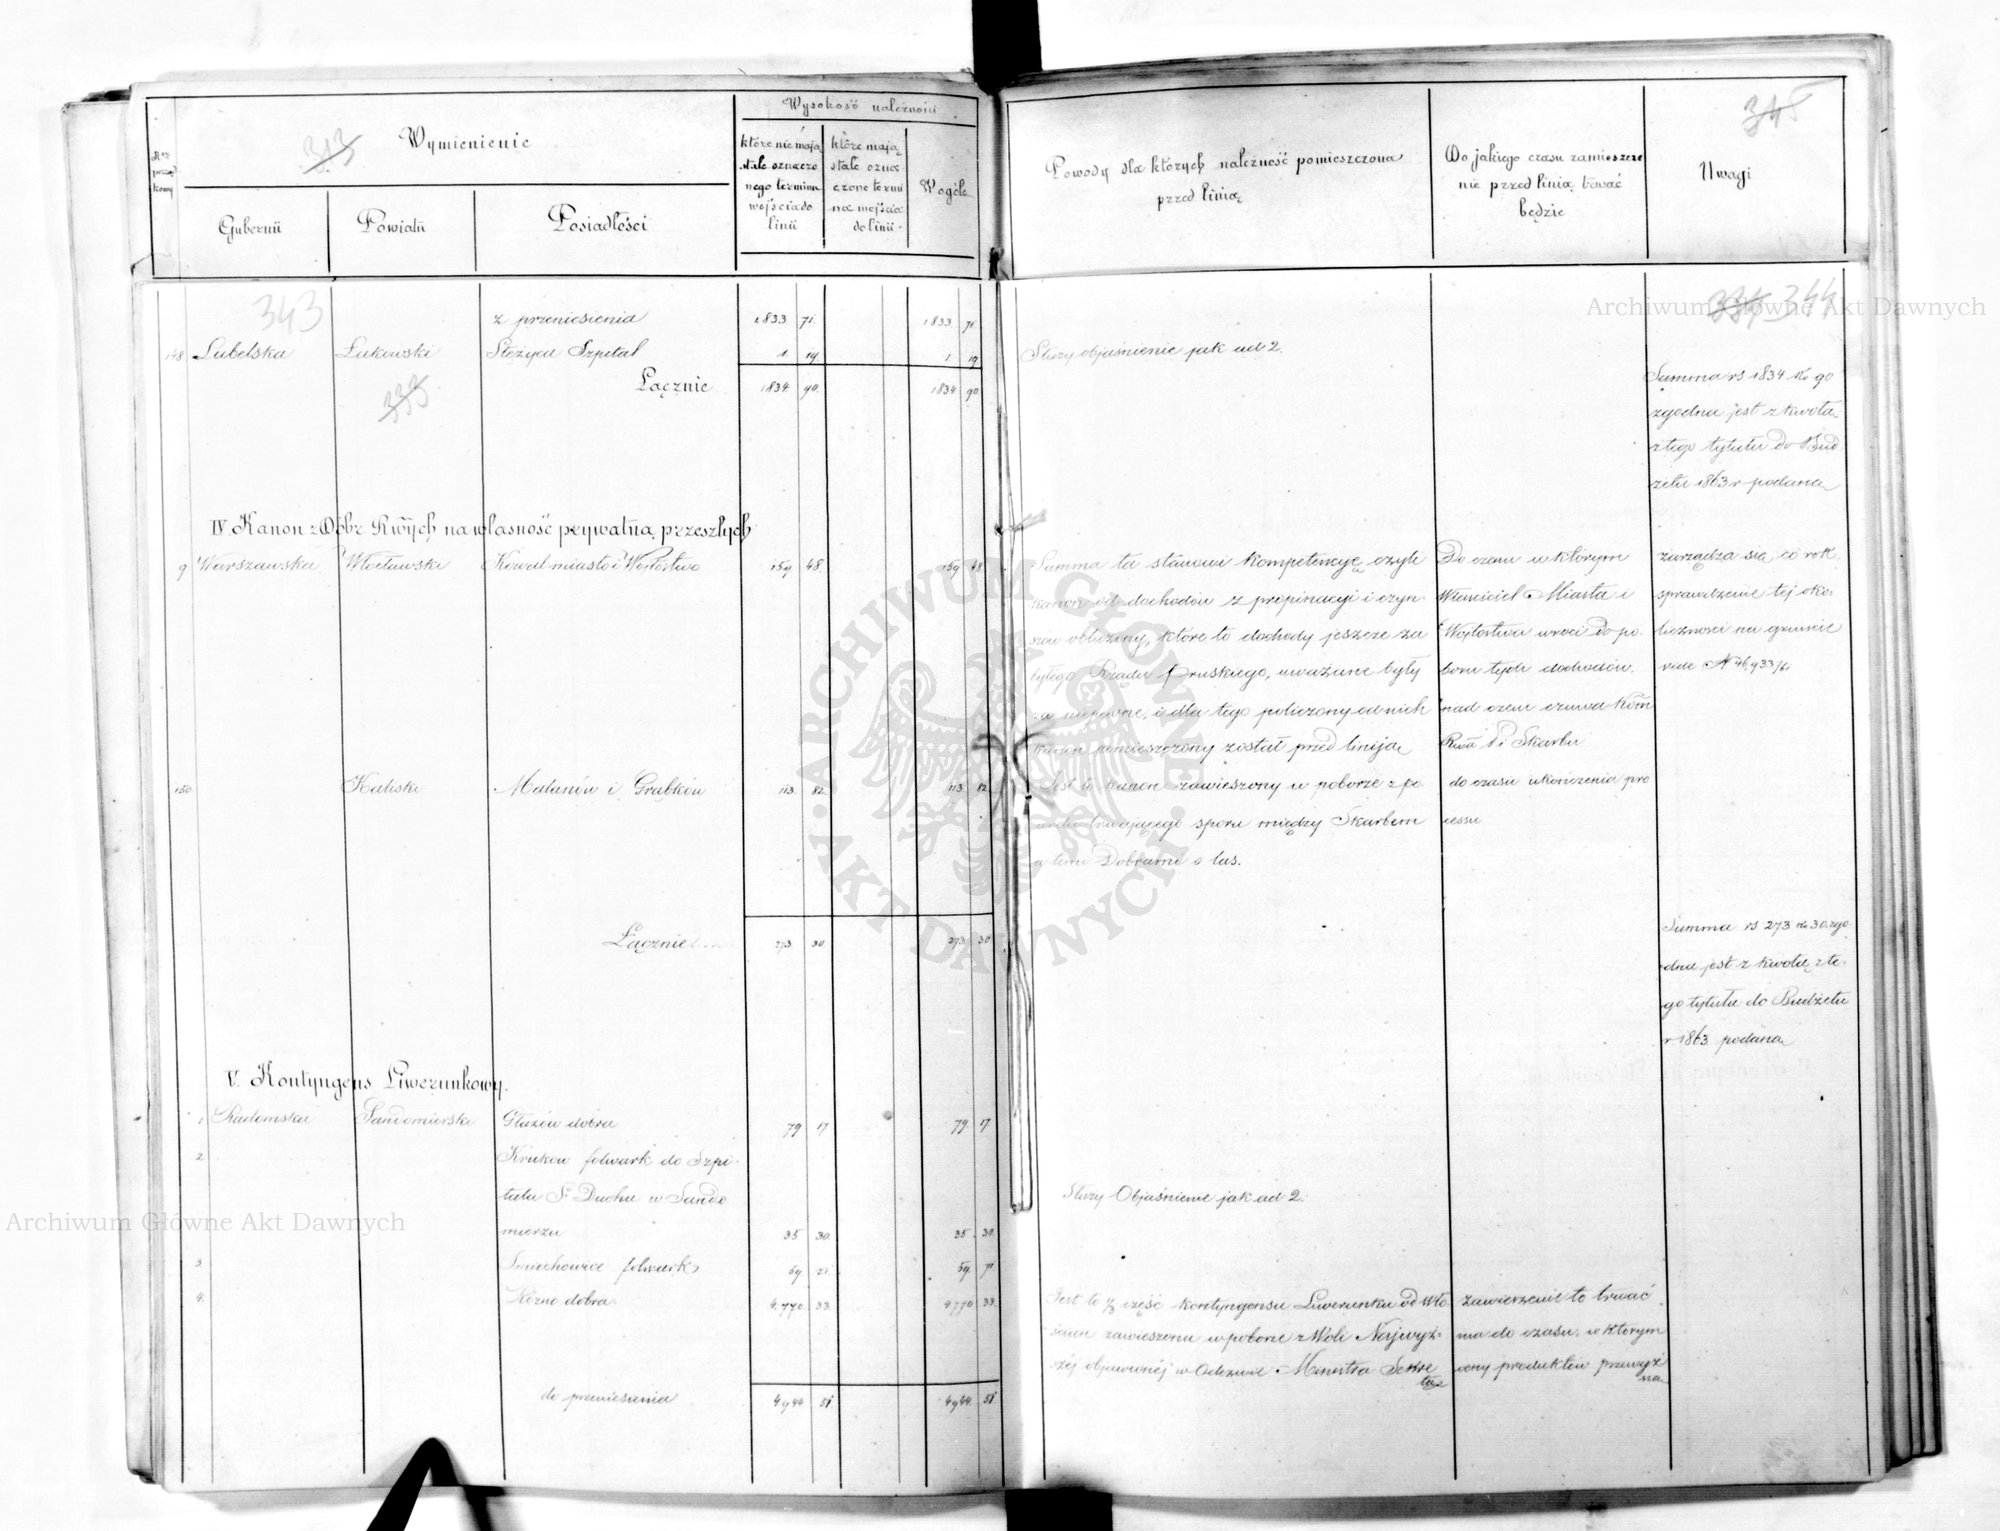 Wymienienie
Wysokość należności
343
No porządkowy
Gubernii
Powiatu
Posiadłości
które nie mają stale oznaczonego terminu wejścia do linii
które mają stale oznaczone termina wejścia do linii
Wogóle
Powody dla których należność pomieszczona
przed linią
Do jakiego czasu zamieszcze
nie przed linią trwać
będzie
Uwagi
345
343
344
z przeniesienia 1833 71 1833 71
148 Lubelska Łukowski Stężyca Szpital 1 19 1 19 Służy objaśnienie jak ad 2.
Łącznie 1834 90 1834 90
Summa rs 1834 k. 90
zgodna jest z kwotą
z tego tytułu do Bud
żetu 1863 r podaną
IV. Kanon z Dóbr Rwych na własność prywatną przeszłych
9 Warszawska Włocławski Kowal miasto i Wójtostwo 159 48 159 48
Summa ta stanowi kompetencyę czyli
kanon od dochodów z propinacyi i czyn-
szów obliczony, które to dochody jeszcze za
byłego Rządu Pruskiego, uważane były
za niepewne, i dla tego policzony od nich
kanon pomieszczony został przed linija
Do czasu w którym
Właściciel Miasta i
Wójtostwa wróci do po-
boru tych dochodów.
nad czem czuwa Kom
Rwa P i Skarbu
zarządza się co rok
sprawdzenie tej oko-
liczności na gruncie
vide N 46,933/61
150 Kaliski Malanów i Grąbków 113 82 113 82
Jest to kanon zawieszony w poborze z po
wodu trwającego sporu między Skarbem
a temi Dobrami o las.
do czasu ukończenia pro
cessu
Łącznie 273 30 273 30
Summa rs 273 k. 30. zgo
dna jest z kwotą z te-
go tytułu do Budżetu
r 1863 podaną
V. Kontyngens Liwerunkowy.
1 Radomska Sandomierski Głazów dobra 79 17 79 17
2 Kruków folwark do Szpi-
tala S. Ducha w Sando
mierzu 35 30 35 30
Służy Objaśnienie jak ad 2.
3 folwark 59 71 59 71
4. Różne dobra 4.770 33 4.770 33
Jest to część kontyngensu Liwerunku od Wło
ścian zawieszona w poborze z Woli Najwyż-
széj objawionéj w Odezwie Ministra Sekre
tarza
zawieszenie to trwać
ma do czasu, w którym
ceny produktów przewyż
do przeniesienia 4944 51 4944 51
Archiwum Główne Akt Dawnych
Archiwum Główne Akt Dawnych
ARCHIWUM GŁÓWNE AKT DAWNYCH